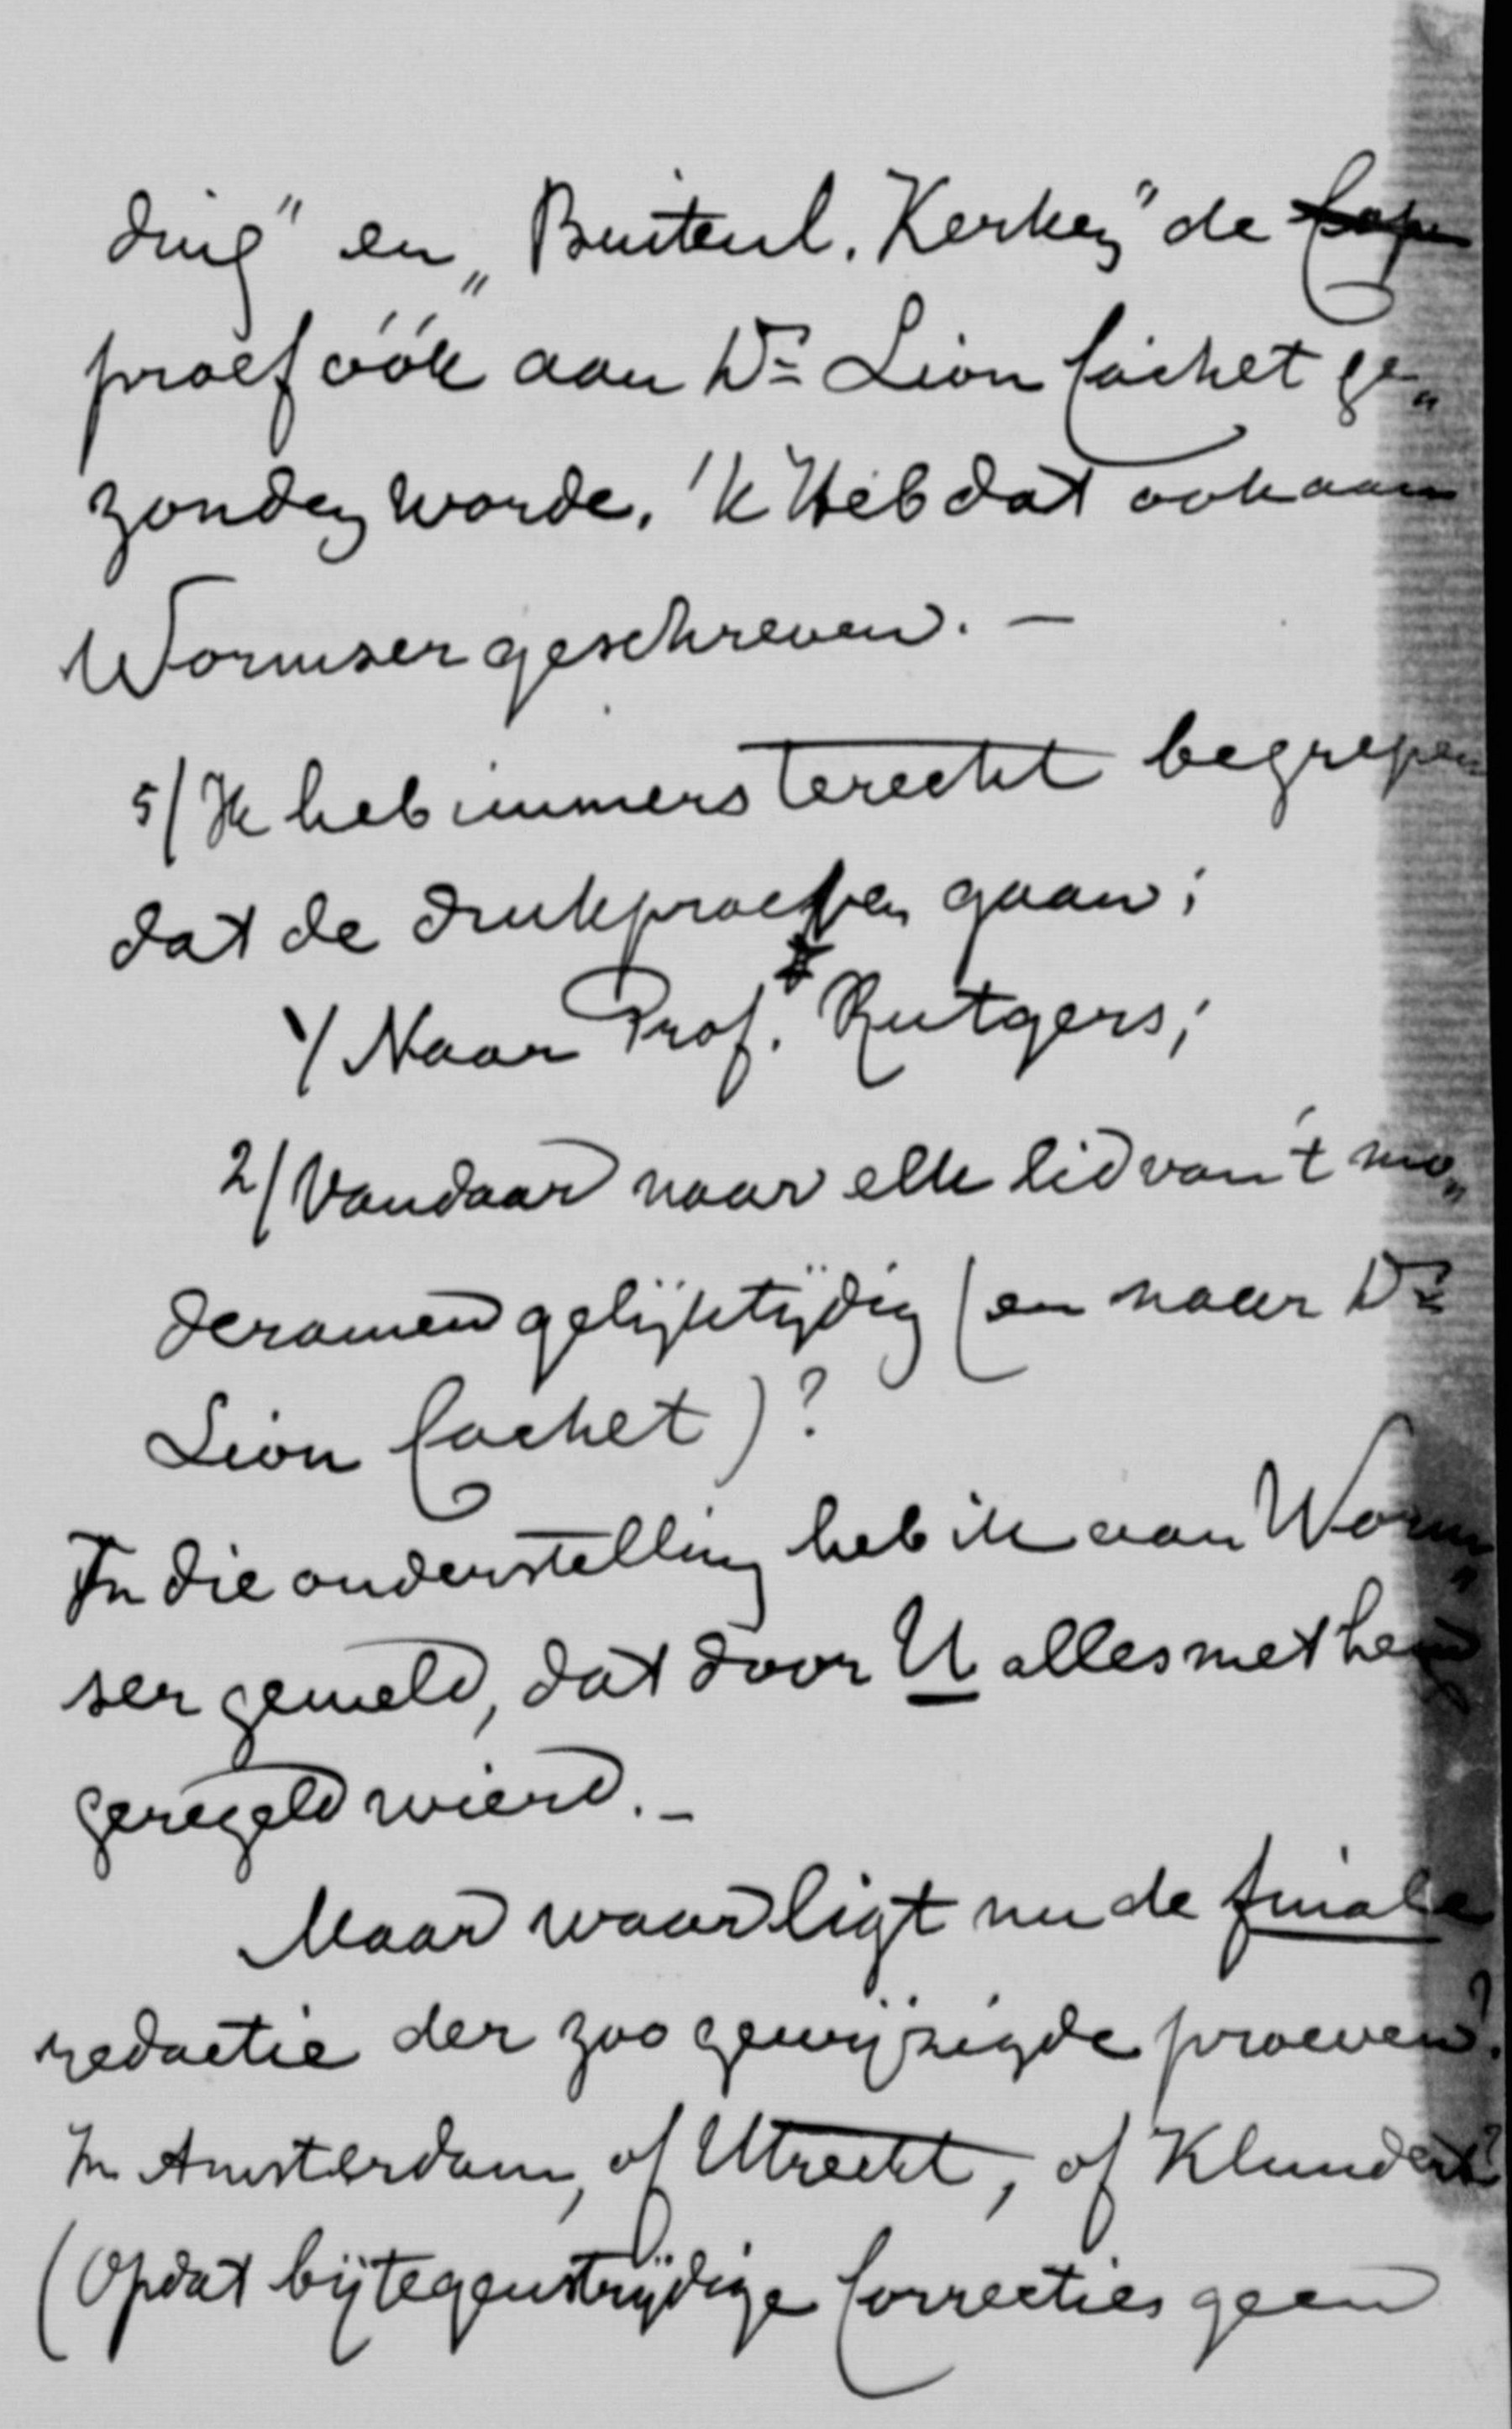 ding" en „Buitenl. Kerken" de
proef óók aan Ds Lion Cachet ge„
zonden worde. 'k Heb dat ook aan
Wormser geschreven. —
5/ Ik heb immers terecht begrepen
dat de drukproeven gaan:
1/ Naar Prof. Rutgers;
2/ Vandaar naar elk lid van 't mo„
deramen gelijktijdig (en naar Ds
Lion Cachet)?
In die onderstelling heb ik aan Worm„
ser gemeld, dat door U alles met hem
geregeld wierd. –
Maar waar ligt nu de finale
redactie der zoo gewijzigde proeven?
In Amsterdam, of Utrecht, of Klundert?
(Opdat bij tegenstrijdige Correcties geen